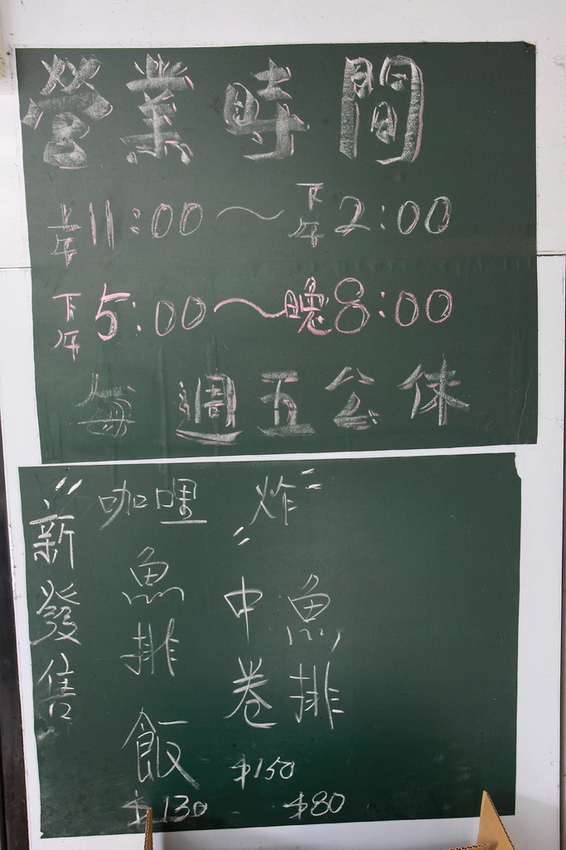 營業時間
上午11:00～下午2:00
下午5:00～晚8:00
每週五公休
新發售
咖哩魚排飯
$130
"炸"
中卷
$150
魚排
$80